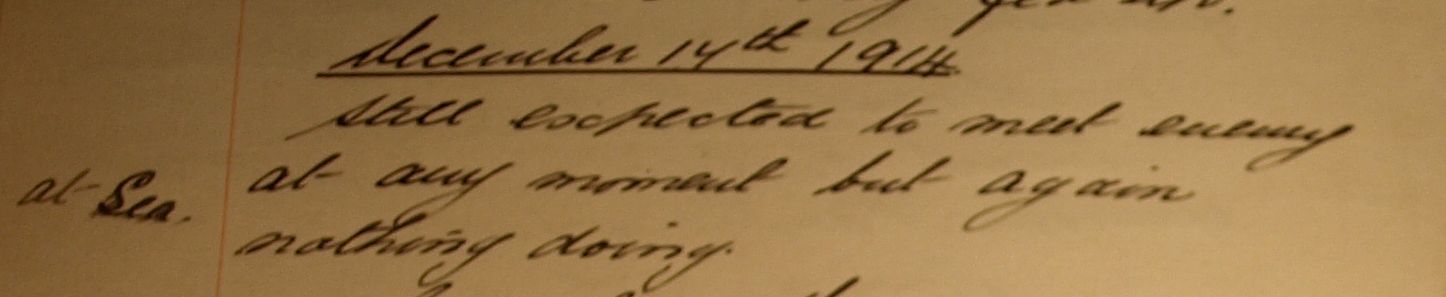 December 14th 1914
Still expected to meet enemy
at Sea. at any moment but again
nothing doing.